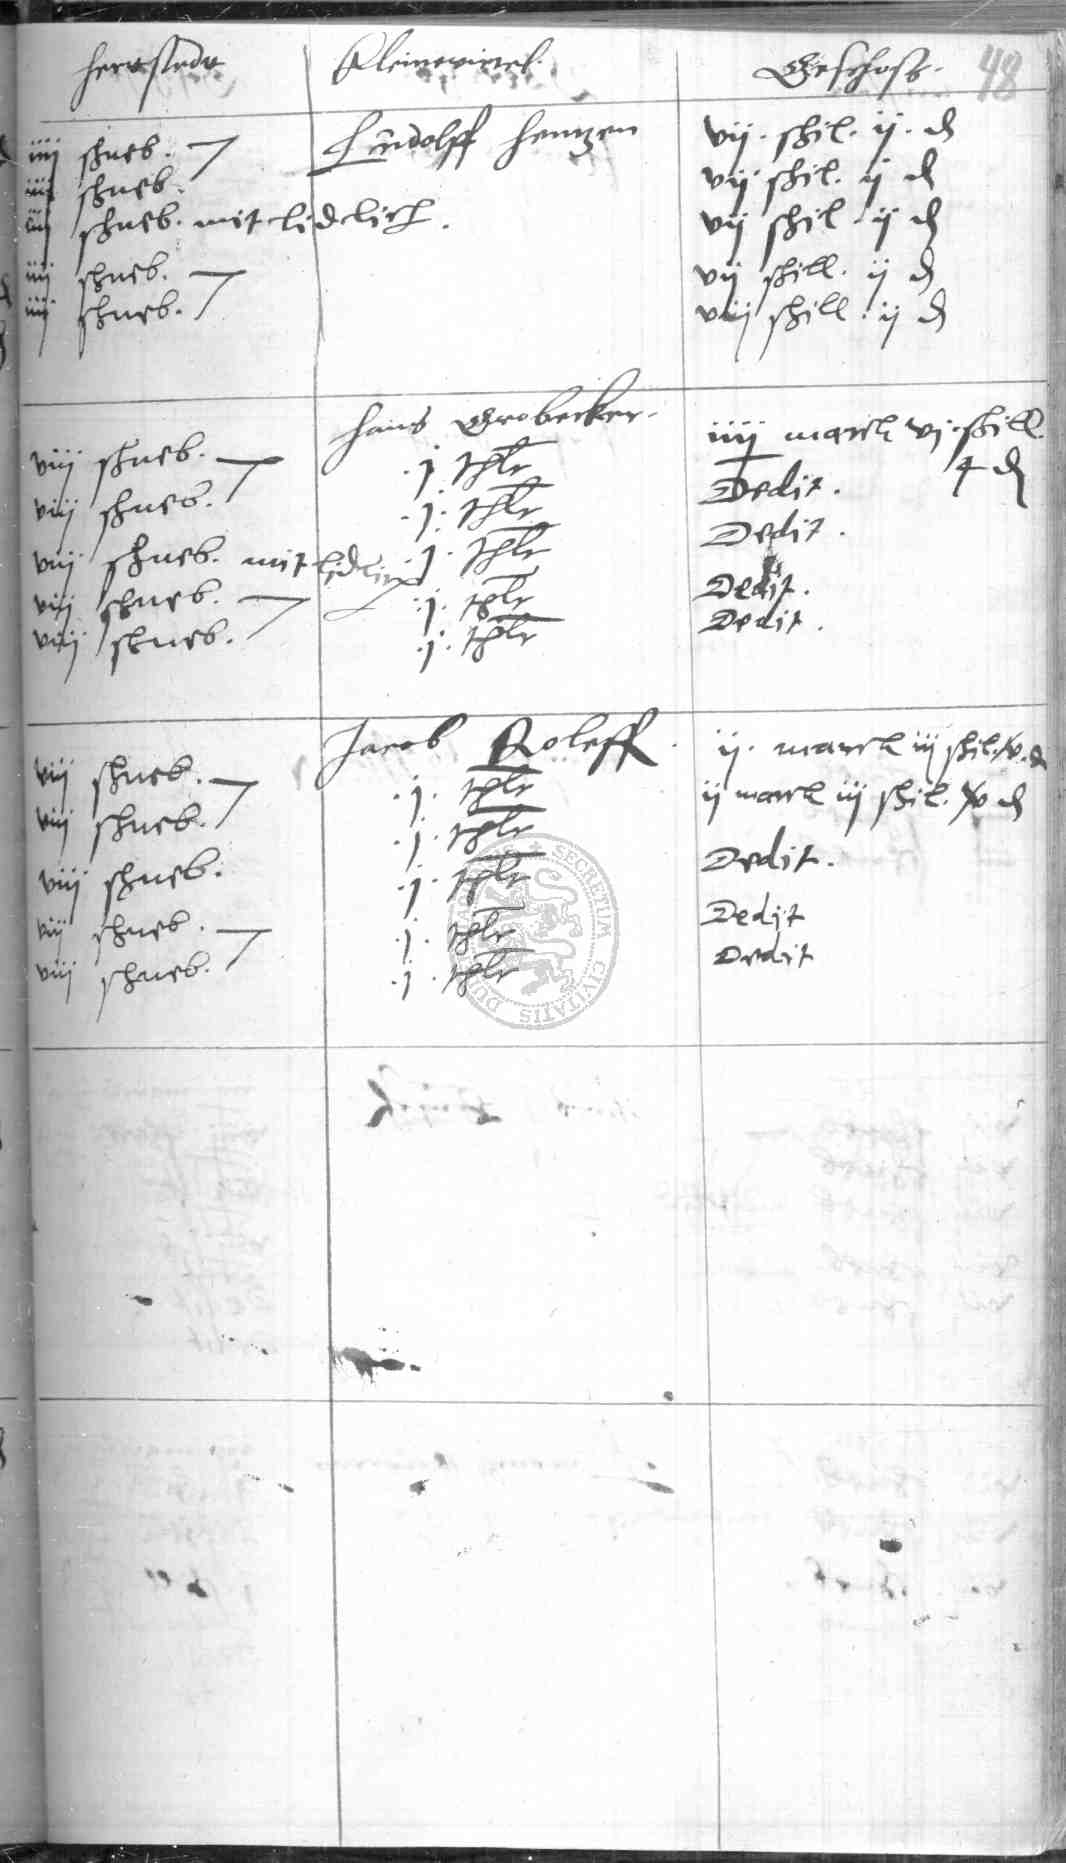 herrstedt Kleinevirtel. Geschoss. 48
iiij schneb. Ludolff Hentzen vij. shil. ij. d
iiij schneb. vij shil. ij d
iiij schneb. mit lidlich. vij shil. ij d
iiij schneb. vij shill. ij d
iiij schneb. vij shill. ij d
viij schneb. Hans Grobecker. iiij marck vj. shill.
4 d
viij schneb. .j. thlr Dedit.
viij schneb. mit lidlich .j. thlr Dedit.
viij schneb. .j. thlr Dedit.
viij schneb. .j. thlr Dedit.
.j. thlr
viij schneb. Jacob Roleff. ij. marck iij shil. xv. d
viij schneb. .j. thlr ij marck iij shil. xv d
viij schneb. .j. thlr Dedit.
viij schneb. .j. thlr Dedit
viij schneb. .j. thlr Dedit
.j. thlr
SECRETUM CIVITATIS